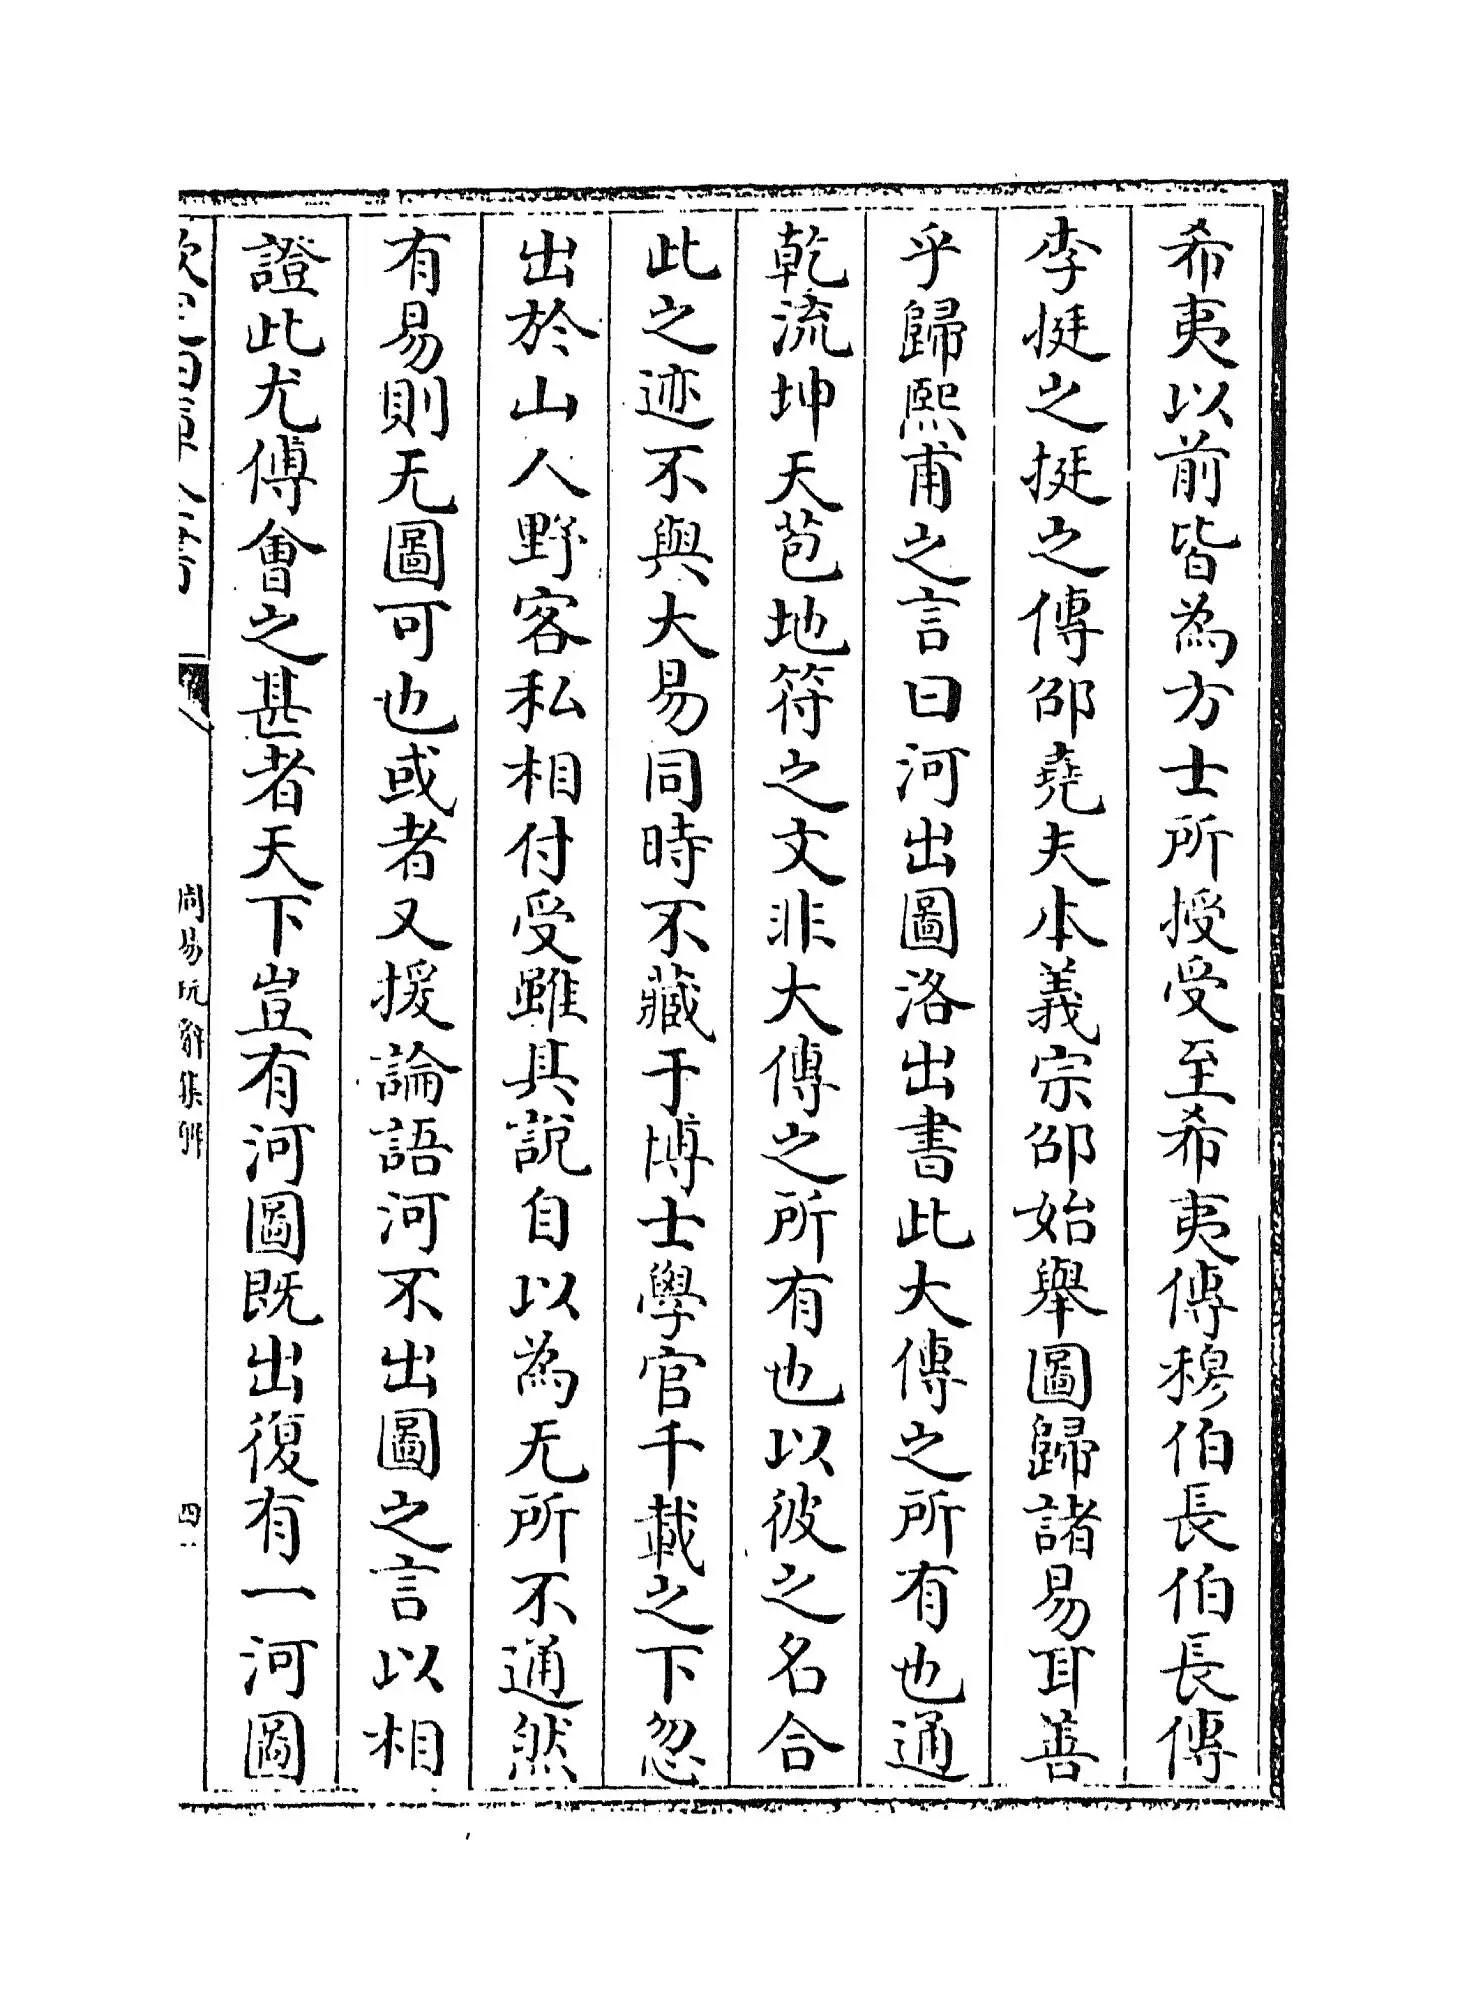 希夷以前皆為方士所授受至希夷傳穆伯長伯長傳
李挺之挺之傳邵堯夫本義宗邵始舉圖歸諸易耳善
乎歸熙甫之言曰河出圖洛出書此大傳之所有也通
乾流坤天苞地符之文非大傳之所有也以彼之名合
此之迹不與大易同時不藏于博士學官千載之下忽
出於山人野客私相付受雖其說自以為无所不通然
有易則无圖可也或者又援論語河不出圖之言以相
證此尤傅會之甚者天下豈有河圖既出復有一河圖
欽定四庫全書
周易玩辭集解
四